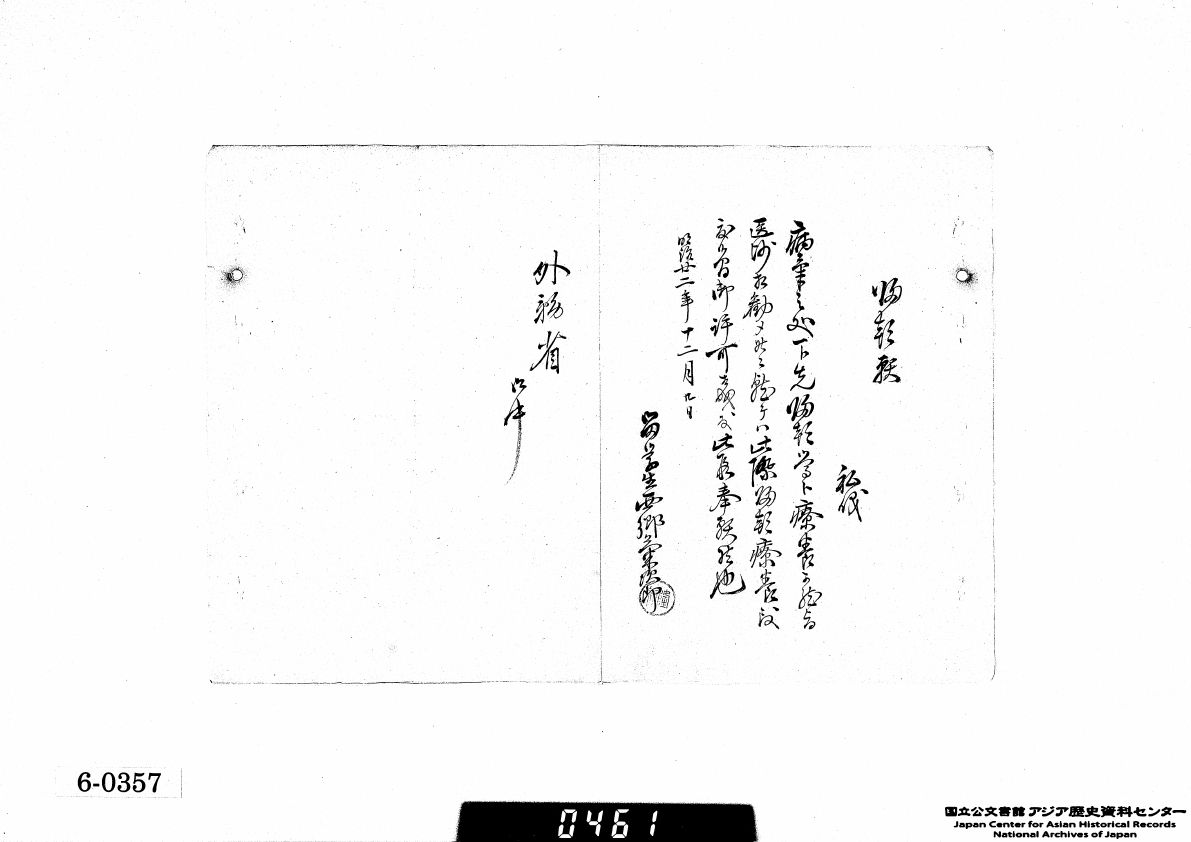 帰朝願
私儀
病気之処一ト先帰朝之上ト療養可然旨
医師相勧メ候ニ就テハ此際帰朝療養致
度候間御許可被成下度此段奉願候也
明治廿二年十二月九日
留学生西郷菊次郎
外務省
御中
6-0357
0461
国立公文書館 アジア歴史資料センター
Japan Center for Asian Historical Records
National Archives of Japan